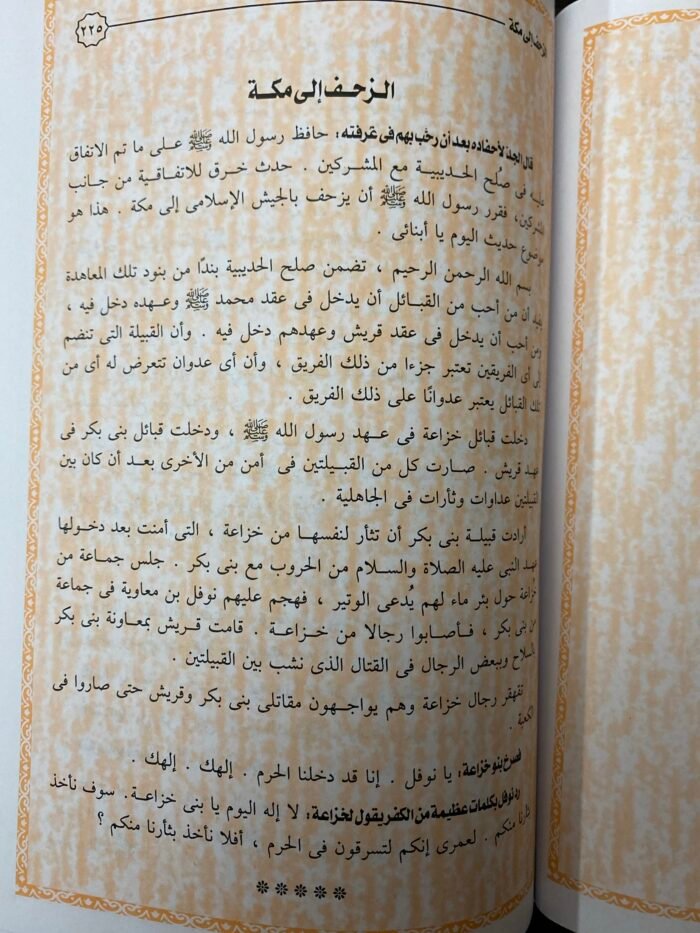 ٢٢٥
الزحف إلى مكة
الـزحـف إلى مكـة
قال الجد لأحفاده بعد أن رحب بهم فى غرفته: حافظ رسول الله ﷺ عـلـى ما تم الاتفاق
عليـه فى صلح الحديبيـة مع المشركين . حدث خرق للاتفـاقيـة من جـانب
المشركين، فقرر رسول الله ﷺ أن يزحف بالجيش الإسلامى إلى مكة . هذا هو
موضوع حديث اليوم يا أبنائى .
بسم الله الرحمن الرحيم ، تضمن صلح الحديبية بندًا من بنود تلك المعاهدة
أن من أحب من القبـائل أن يدخل فى عقد محمد ﷺ وعـهده دخل فيه ،
ومن أحب أن يدخل فى عقد قريش وعهدهم دخل فيه . وأن القبيلة التى تنضم
إلى أى الفريقين تعتبر جزءا من ذلك الفريق ، وأن أى عدوان تتعرض له أى من
تلك القبائل يعتبر عدوانًا على ذلك الفريق .
دخلت قبائل خزاعة فى عـهد رسول الله ﷺ ، ودخلت قبائل بنى بكر فى
عهد قريش . صـارت كل من القبـيلتين فى أمن من الأخرى بعد أن كان بين
القبيلتين عداوات وثأرات فى الجاهلية .
أرادت قبيلـة بنى بكر أن تثأر لنفسهـا من خزاعة ، التى أمنت بعد دخـولها
عهد النبى عليه الصلاة والسـلام من الحروب مع بنى بكر . جلس جماعة من
خُزاعة حول بئر ماء لهم يُدعى الوتير ، فهجم عليهم نوفل بن معاوية فى جماعة
من بنى بكر ، فـأصـابوا رجالا من خـزاعـة . قامت قريش بمعاونة بنى بكر
بالسلاح وببعض الرجال فى القتال الذى نشب بين القبيلتين .
تقهقر رجال خزاعة وهم يواجـهـون مقاتلى بنى بكر وقريش حتى صاروا فى
الكعبة .
فصرخ بنو خزاعة: يا نوفل . إنا قد دخلنا الحرم . إلهك . إلهك .
رد نوفل بكلمات عظيمة من الكفر يقول لخزاعة: لا إله اليوم يا بنى خزاعـة. سوف نأخذ
بثأرنا منكم . لعمرى إنكم لتسرقون فى الحرم ، أفلا نأخذ بثأرنا منكم ؟
*****